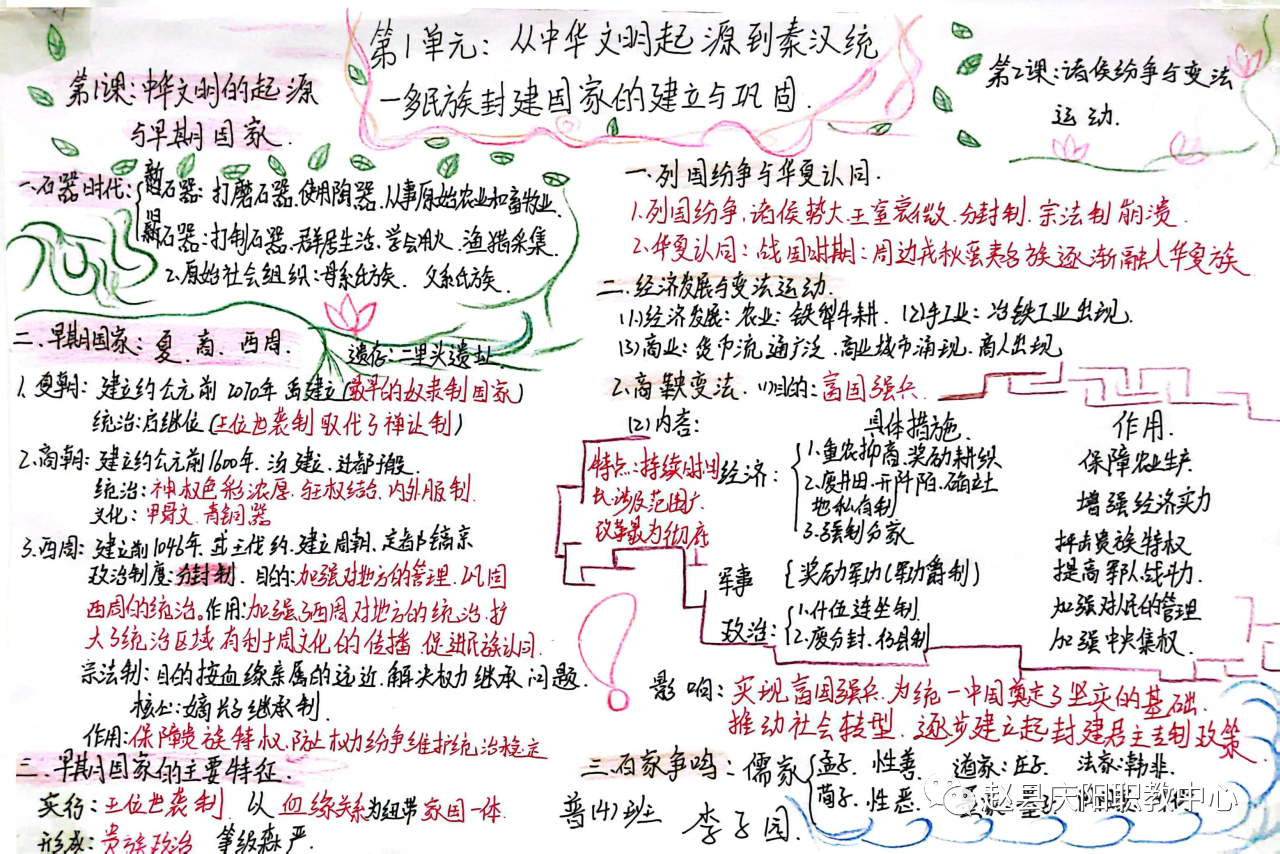 第1单元：从中华文明起源到秦汉统
一多民族封建国家的建立与巩固.
第1课：中华文明的起源
与早期国家.
一.石器时代：
新石器：打磨石器.使用陶器.从事原始农业和畜牧业.
旧石器：打制石器.群居生活.学会用火.渔猎采集.
2.原始社会组织：母系氏族. 父系氏族.
二.早期国家：夏.商.西周.
遗存：二里头遗址.
1.夏朝：建立约公元前2070年 禹建立(最早的奴隶制国家)
统治：启继位(王位世袭制取代了禅让制)
2.商朝：建立约公元前1600年.汤建立.迁都于殷.
统治：神权色彩浓厚. 内外服制.
文化：甲骨文.青铜器
3.西周：建立前1046年.武王伐纣.建立周朝.定都镐京
政治制度：分封制.目的：加强对地方的管理.巩固
西周的统治。作用：加强了西周对地方的统治.扩
大了统治区域.有利于周文化的传播.促进民族认同.
宗法制：目的按血缘亲属的远近.解决权力继承问题.
核心：嫡长子继承制.
作用：保障贵族特权.防止权力纷争维护统治稳定
三.早期国家的主要特征.
实行：王位世袭制 以血缘关系为纽带家国一体.
形成：贵族政治 等级森严.
第2课：诸侯纷争与变法
运动.
一.列国纷争与华夏认同.
1.列国纷争.诸侯势大.王室衰微.分封制.宗法制崩溃.
2.华夏认同：战国时期：周边戎狄蛮夷各族逐渐融入华夏族
二.经济发展与变法运动.
1.(1)经济发展：农业：铁犁牛耕. (2)手工业：冶铁工业出现.
(3)商业：货币流通广泛.商业城市涌现.商人出现
2.商鞅变法. (1)目的：富国强兵.
(2)内容：
具体措施. 作用.
特点：持续时间
长涉及范围广
改革最为彻底
经济：
1.重农抑商.奖励耕织
2.废井田.开阡陌.确立土
地私有制
3.强制分家
保障农业生产
增强经济实力
军事 {奖励军功(军功爵制)
抨击贵族特权
提高军队战斗力.
政治：
1.什伍连坐制.
2.废分封.行县制
加强对人民的管理
加强中央集权.
影响：实现富国强兵.为统一中国奠定了坚实的基础.
推动社会转型.逐步建立起封建君主专制政策
三.百家争鸣：儒家 孟子.性善. 道家：庄子. 法家：韩非.
荀子.性恶.
普(4)班 李子园.
赵县庆阳职教中心